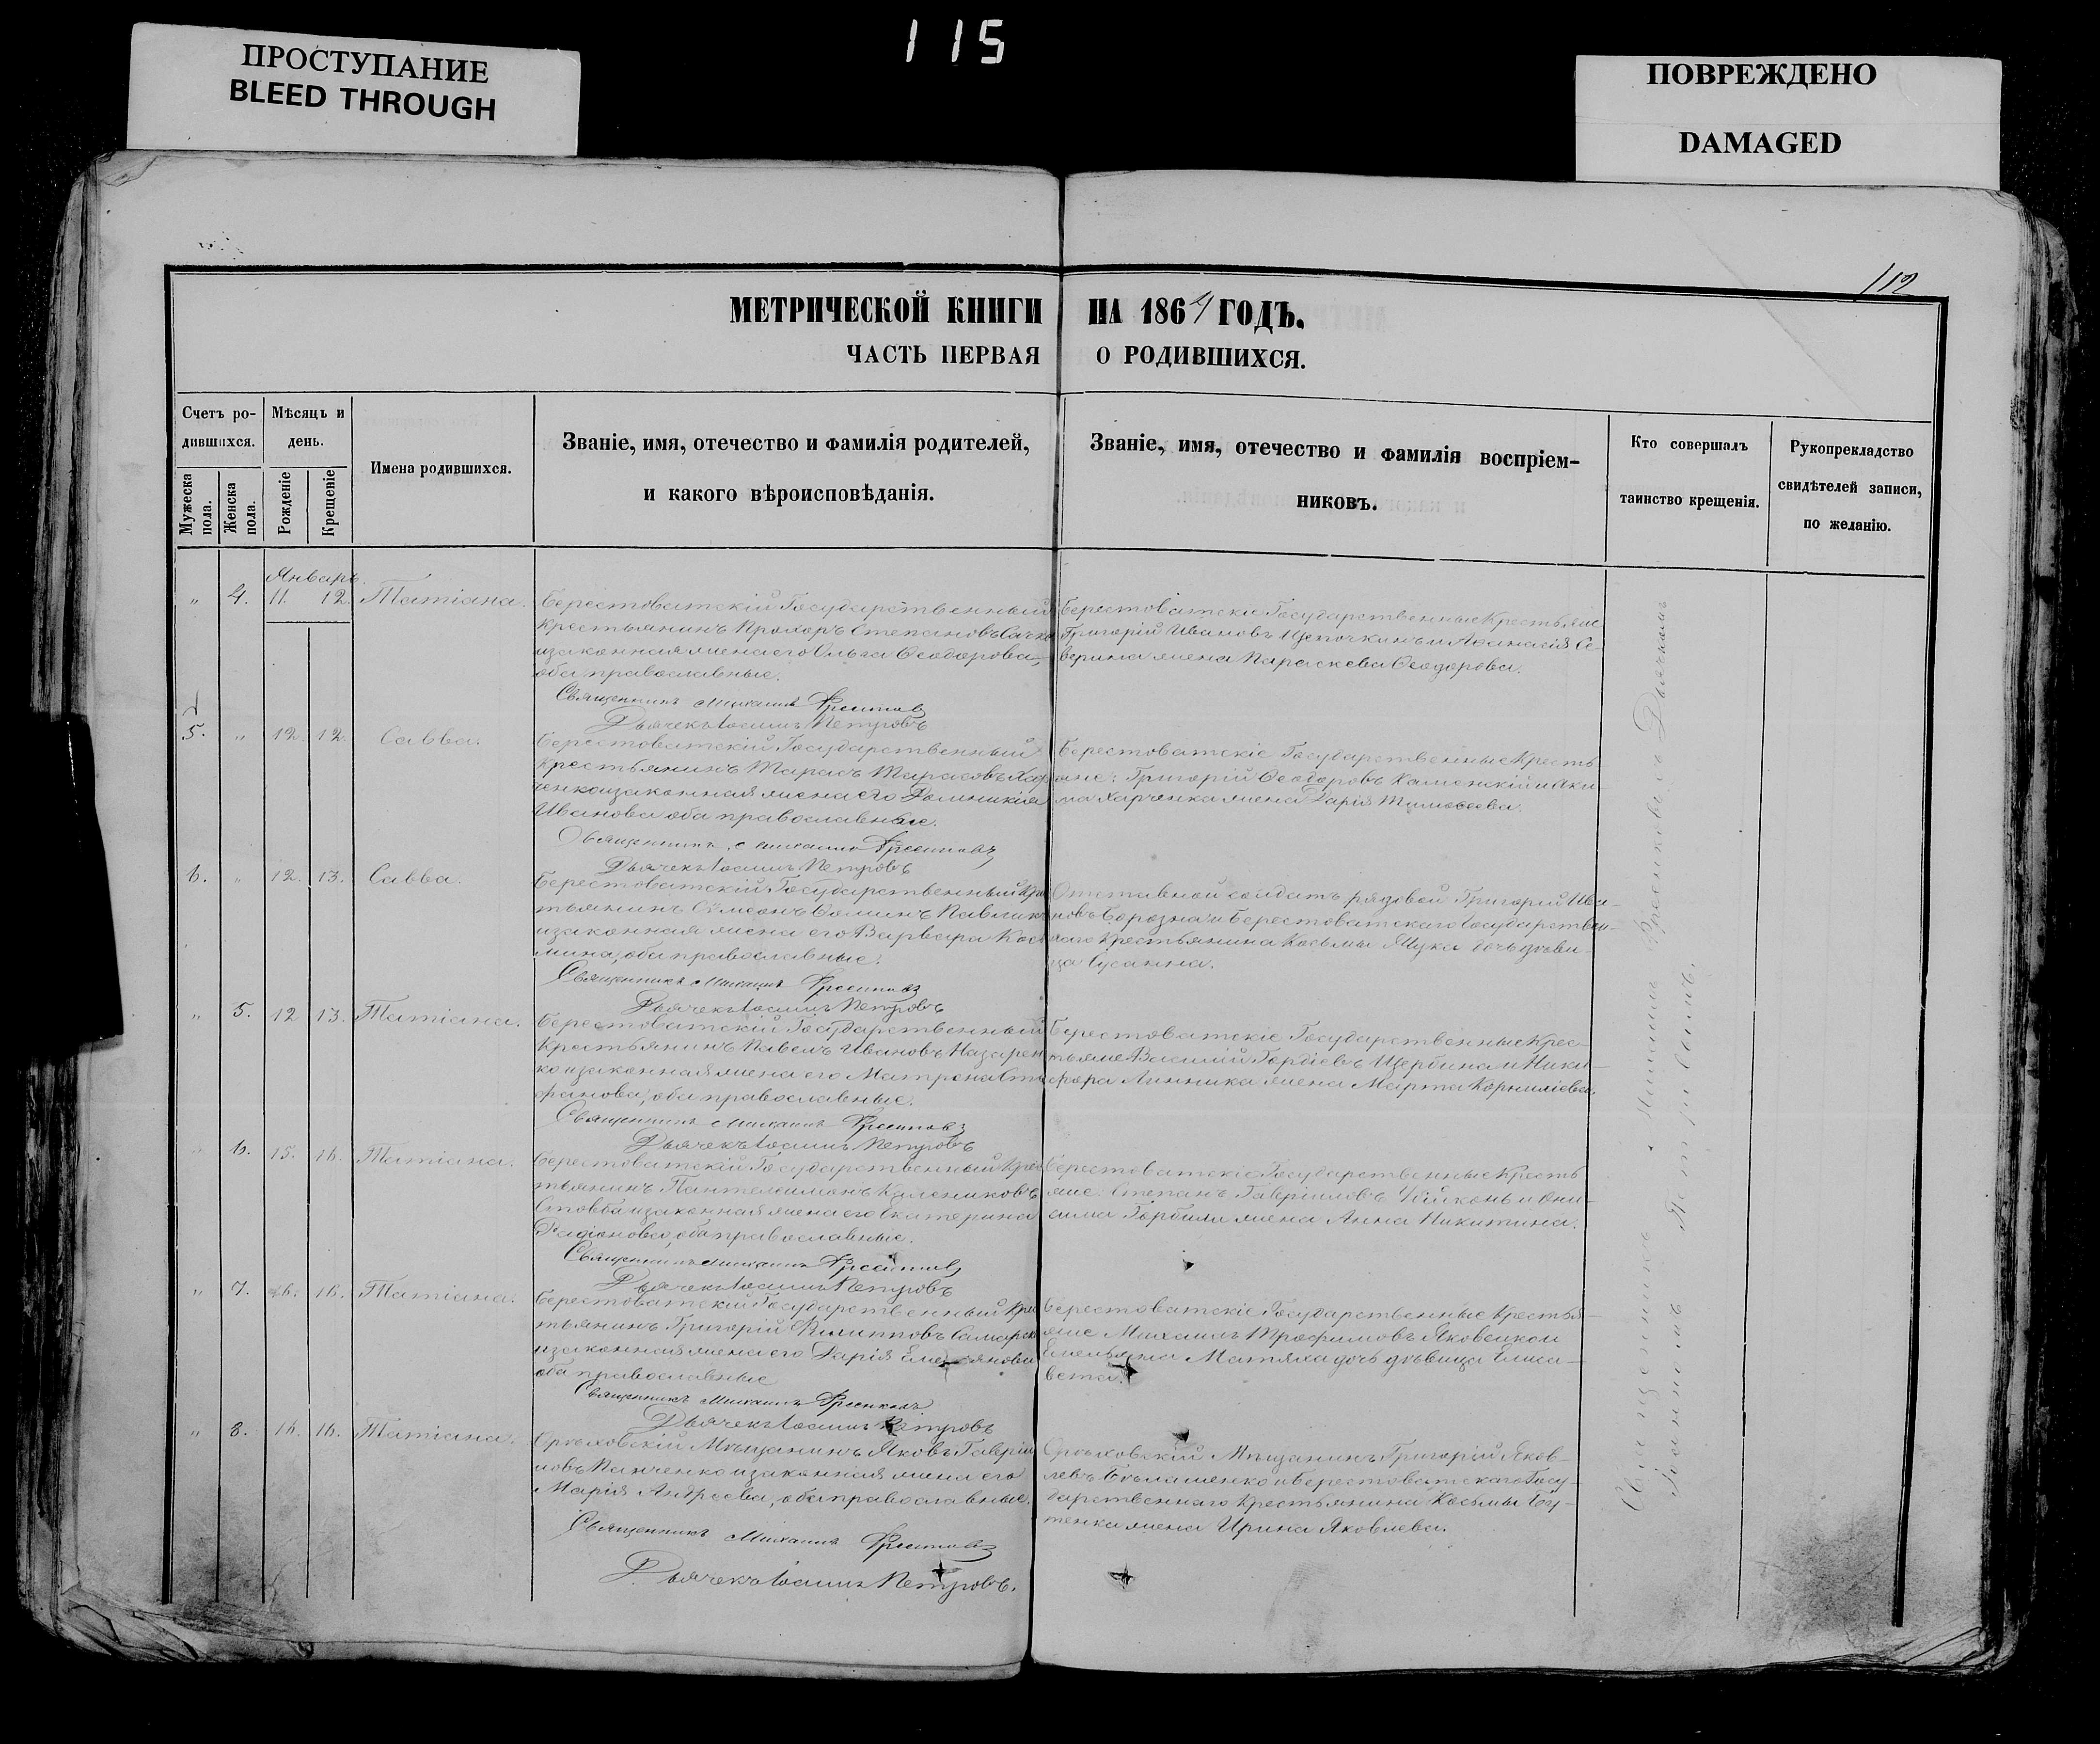 115
ПРОСТУПАНИЕ
BLEED THROUGH
ПОВРЕЖДЕНО
DAMAGED
112
МЕТРИЧЕСКОЙ КНИГИ НА 1864 ГОДЪ.
ЧАСТЬ ПЕРВАЯ О РОДИВШИХСЯ.
Счетъ ро-
дившихся.
Мужеска пола.
Женска пола.
Мѣсяцъ и
день.
Рожденіе
Крещеніе
Имена родившихся.
Званіе, имя, отечество и фамилія родителей,
и какого вѣроисповѣданія.
Званіе, имя, отечество и фамилія воспріем-
никовъ.
Кто совершалъ
таинство крещенія.
Рукоприкладство
свидѣтелей записи,
по желанію.
Январь.
" 4. 11. 12. Татіана.
Берестоватскій Государственный
Крестьянинъ Прохоръ Степановъ
и законная жена его Ольга Ѳеодорова,
оба православные.
Священникъ Михаилъ
Дьячекъ Іоаннъ Петровъ
Григорій Ивановъ и Аѳанасія Се-
верина жена Параскева Ѳеодорова.
5. " 12. 12. Савва.
Берестоватскій Государственный
Крестьянинъ Тарасъ Тарасовъ Хар
ченко и законная жена его Домникія
Иванова оба православные.
Священникъ Михаилъ
Дьячекъ Іоаннъ Петровъ
Берестоватскіе Государственные Кресть
яне: Григорій Ѳеодоровъ Каменскій и Аки
ма Харченка жена Дарія Тимоѳеева.
6. " 12. 13. Савва.
Берестоватскій Государственный Крес
тьянинъ Сѵмеонъ Ѳоминъ
и законная жена его Варвара Кось
мина, оба православные.
Священникъ Михаилъ
Дьячекъ Іоаннъ Петровъ
Отставной солдатъ рядовой Григорій Ива-
новъ Борозна и Берестоватскаго Государствен-
наго Крестьянина Косьмы дочь дѣви-
ца Сусанна.
" 5. 12 13. Татіана.
Берестоватскій Государственный
Крестьянинъ Павелъ Ивановъ Назарен
ко и законная жена его Матрона Сте
фанова, оба православные.
Священникъ Михаилъ
Дьячекъ Іоаннъ Петровъ
Берестоватскіе Государственные Крес-
тьяне Василій Гордіевъ Щербина и Ники-
фора Линника жена Марта Корниліева.
" 6. 15. 16. Татіана.
Берестоватскій Государственный Крес
тьянинъ Пантелимонъ Калениковъ
Стовба и законная жена его Екатерина
Радіонова, оба православные.
Священникъ Михаилъ
Дьячекъ Іоаннъ Петровъ
Берестоватскіе Государственные Кресть
яне: Степанъ Гавріиловъ и Они-
сима жена Анна Никитина.
" 7. 16. Татіана.
Берестоватскій Государственный Крес
тьянинъ Григорій Филипповъ
и законная жена его Дарія Емельянова
оба православные
Священникъ Михаилъ
Дьячекъ Іоаннъ Петровъ
Берестоватскіе Государственные Крестья-
яне Михаилъ Трофимовъ
Емельяна дочь дѣвица Елиса-
вета.
" 8. 16. 16. Татіана.
Орѣховскій Мѣщанинъ Яковъ Гавріи
ловъ Панченко и законная жена его
Марія Андреева, оба православные.
Священникъ Михаилъ
Дьячекъ Іоаннъ Петровъ.
Орѣховскій Мѣщанинъ Григорій Яков-
левъ и Берестоватскаго Госу-
дарственнаго Крестьянина Косьмы
жена Ирина Яковлева.
Священникъ Михаилъ съ Дьячкомъ
Іоанномъ Петровымъ.